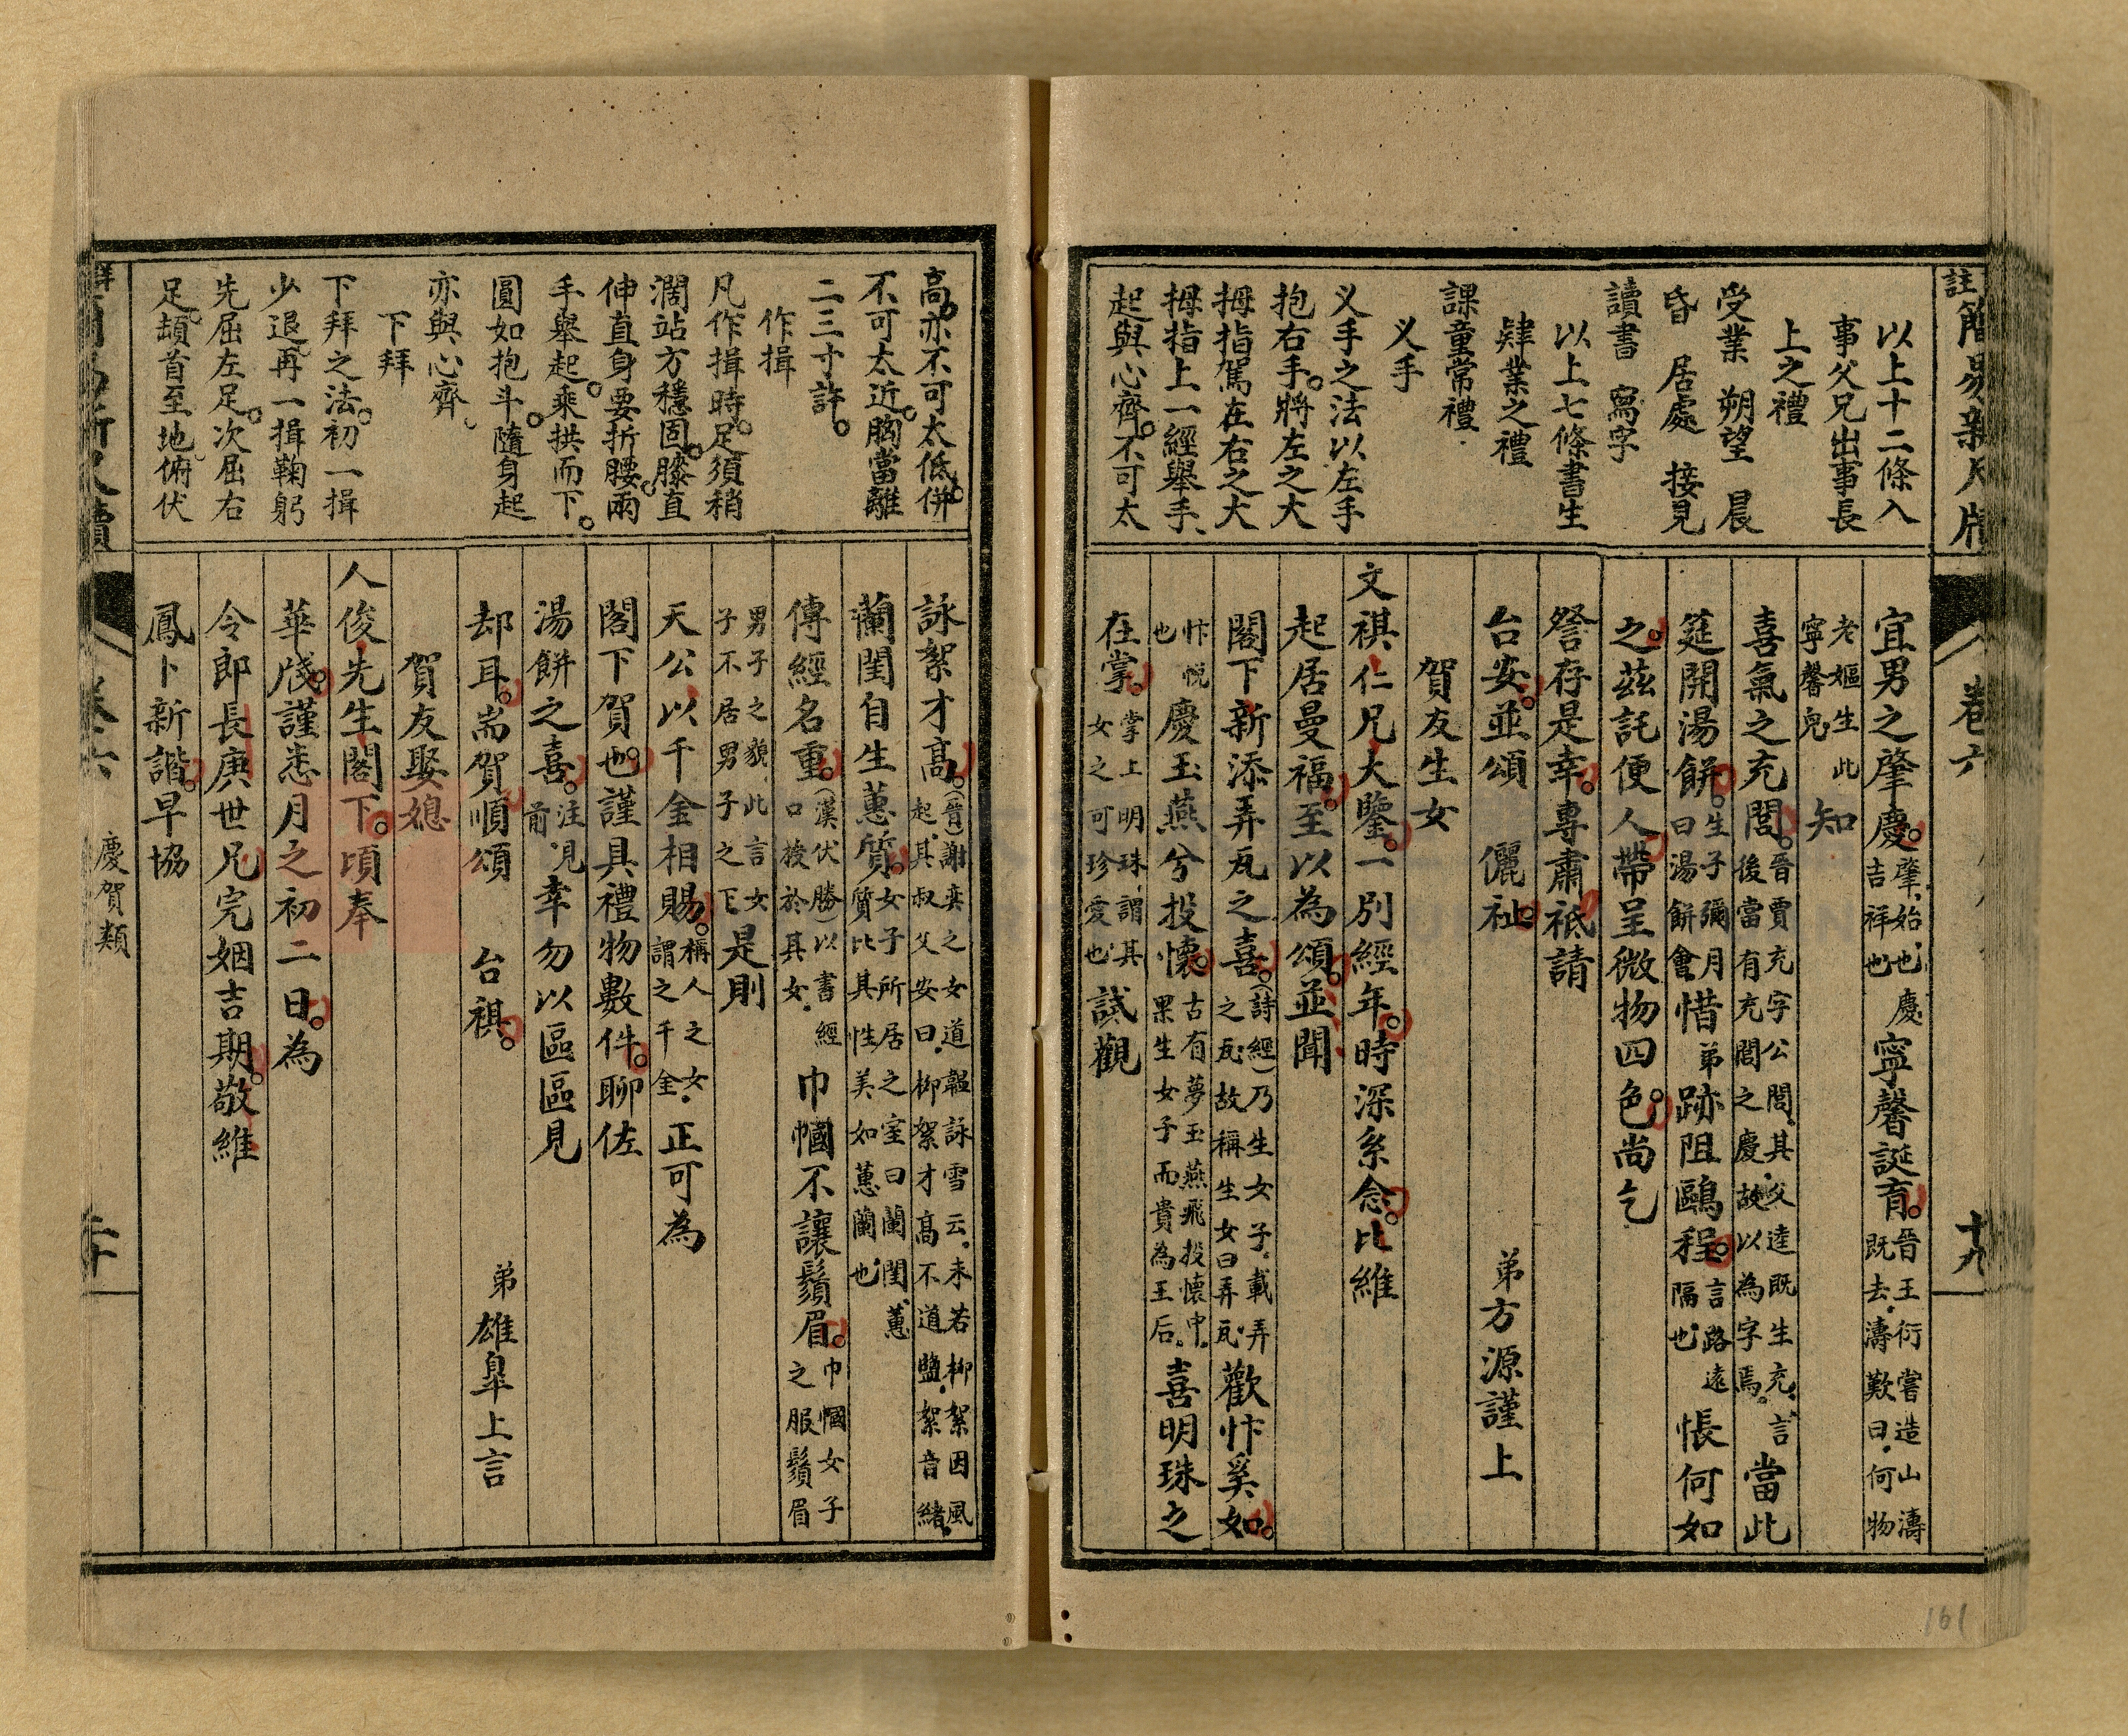 註簡易新尺牘
卷六
十九
以上十二條入
事父兄出事長
上之禮
受業　朔望　晨
昏　居處　接見
讀書　寫字
以上七條書生
肄業之禮
課童常禮
义手
义手之法以左手
抱右手將左之大
拇指駕在右之大
拇指上一經舉手
起與心齊不可太
宜男之肇慶肇始也慶吉祥也寧馨誕育晉王衍嘗造山濤既去濤歎曰何物
老嫗生此寧馨兒知
喜氣之充閭晉賈充字公閭其父逵既生充言後當有充閭之慶故以為字焉當此
筵開湯餅生子彌月曰湯餅會惜弟跡阻鷗程言路遠隔也悵何如
之茲託便人帶呈微物四色尚乞
詧存是幸專肅祗請
台安並頌　儷祉　弟方源謹上
賀友生女
文祺仁兄大鑒一別經年時深系念比維
起居曼福至以為頌並聞
閣下新添弄瓦之喜(詩經)乃生女子載弄之瓦故稱生女曰弄瓦歡忭奚如
忭悅也慶玉燕兮投懷古有夢玉燕飛投懷中果生女子而貴為王后喜明珠之
在掌掌上明珠謂其女之可珍愛也試觀
高亦不可太低併
不可太近胸當離
二三寸許
作揖
凡作揖時足須稍
濶站方穩固膝直
伸直身要折腰兩
手舉起乘拱而下
圓如抱斗隨身起
亦與心齊
下拜
下拜之法初一揖
少退再一揖鞠躬
先屈左足次屈右
足頓首至地俯伏
詠絮才高(晉)謝奕之女道韞詠雪云未若柳絮因風起其叔父安曰柳絮才高不道鹽絮音緒
蘭閨自生蕙質女子所居之室曰蘭閨蕙質比其性美如蕙蘭也
傳經名重(漢伏勝)以書經口授於其女巾幗不讓鬚眉巾幗女子之服鬚眉
男子之貌此言女子不居男子之下是則
天公以千金相賜稱人之女謂之千金正可為
閣下賀也謹具禮物數件聊佐
湯餅之喜注見前幸勿以區區見
却耳耑賀順頌　台祺　弟雄皐上言
賀友娶媳
人俊先生閣下頃奉
華牋謹悉月之初二日為
令郎長庚世兄完姻吉期敬維
鳳卜新諧早協
慶賀類
161